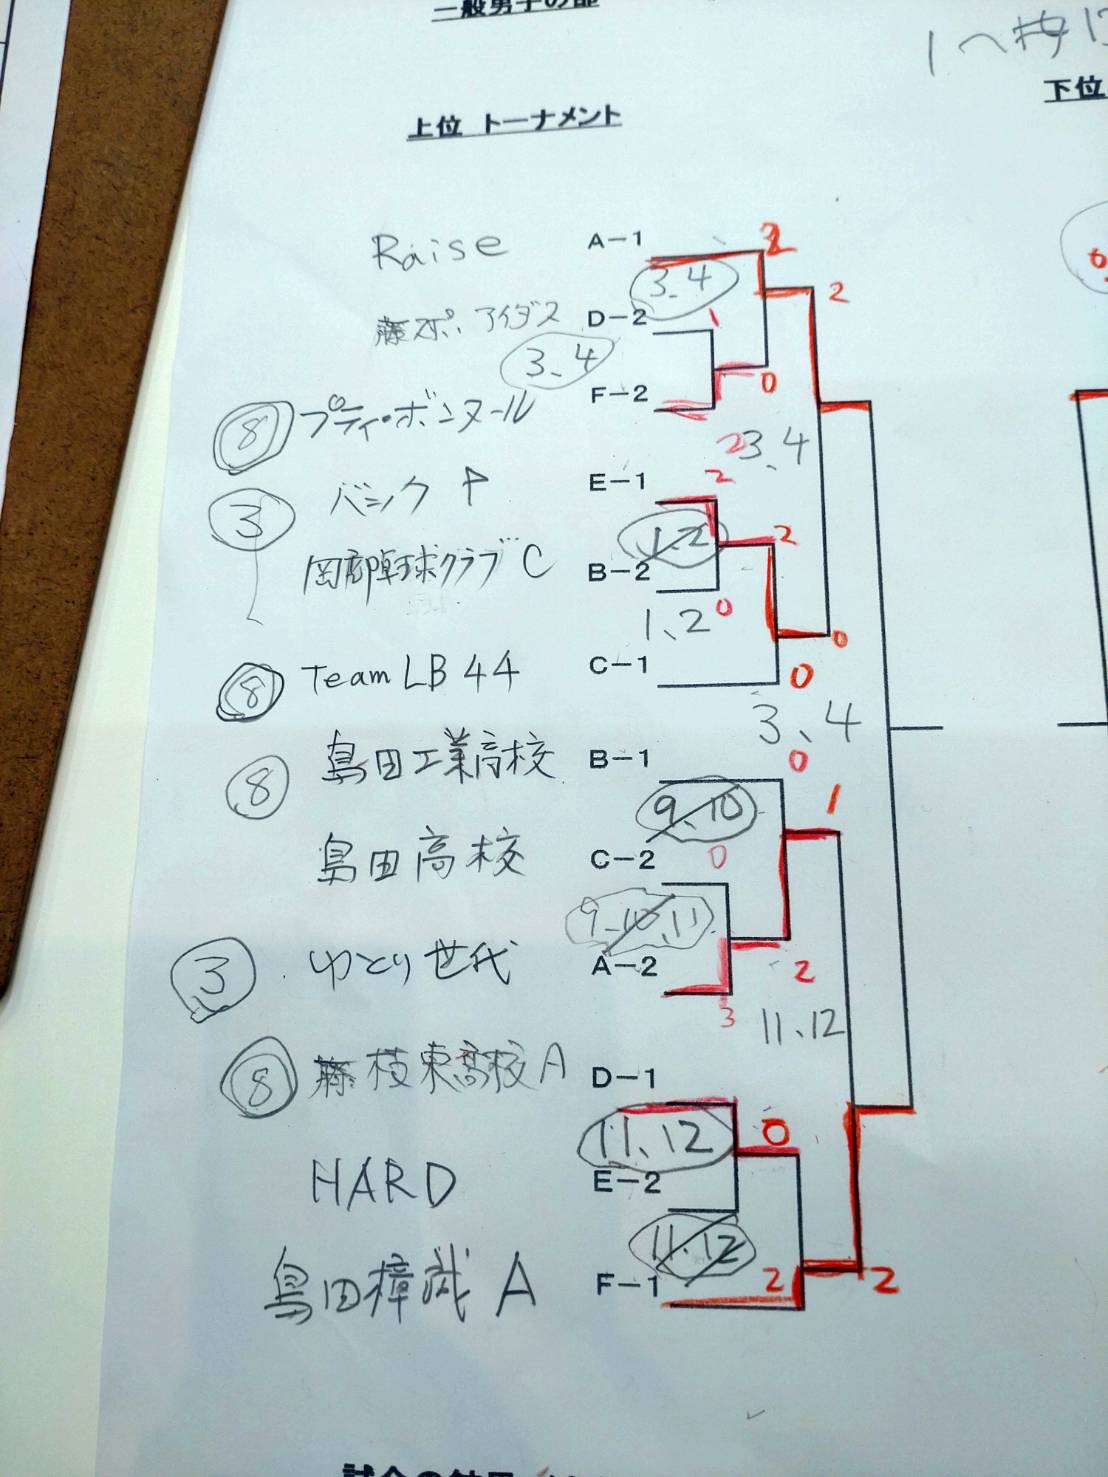 一般男子の部
上位 トーナメント
下位
Raise A-1 2
3、4 2
藤スポ アイダス D-2 1
3、4 0
⑧ プティ・ボンヌール F-2
2 3、4
③ バンク E-1 2
1、2 2
岡部卓球クラブ C B-2
1、2 0 0
⑧ Team LB 44 C-1 0
3、4
⑧ 島田工業高校 B-1 0
9、10 1
島田高校 C-2 0
9、10、11
③ ゆとり世代 A-2 2
3 11、12
⑧ 藤枝東高校 A D-1
11、12 0
HARD E-2
11、12
島田樟誠 A F-1 2 2